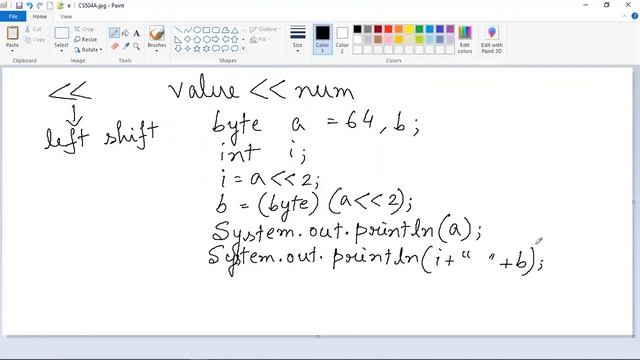 CS504A.jpg - Paint
File Home View
Paste Cut Copy Select Crop Resize Rotate Brushes Outline Fill Size Color 1 Color 2 Edit colors Edit with Paint 3D
Clipboard Image Tools Shapes Colors
<< value << num
left shift byte a = 64, b;
int i;
i = a << 2;
b = (byte) (a << 2);
System.out.println(a);
System.out.println(i+" "+b);